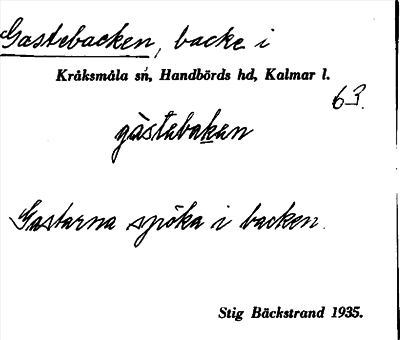 Gastebacken, backe i
Kråksmåla sn, Handbörds hd, Kalmar l.
63.
gàstebaken
Gastarna spöka i backen.
Stig Bäckstrand 1935.